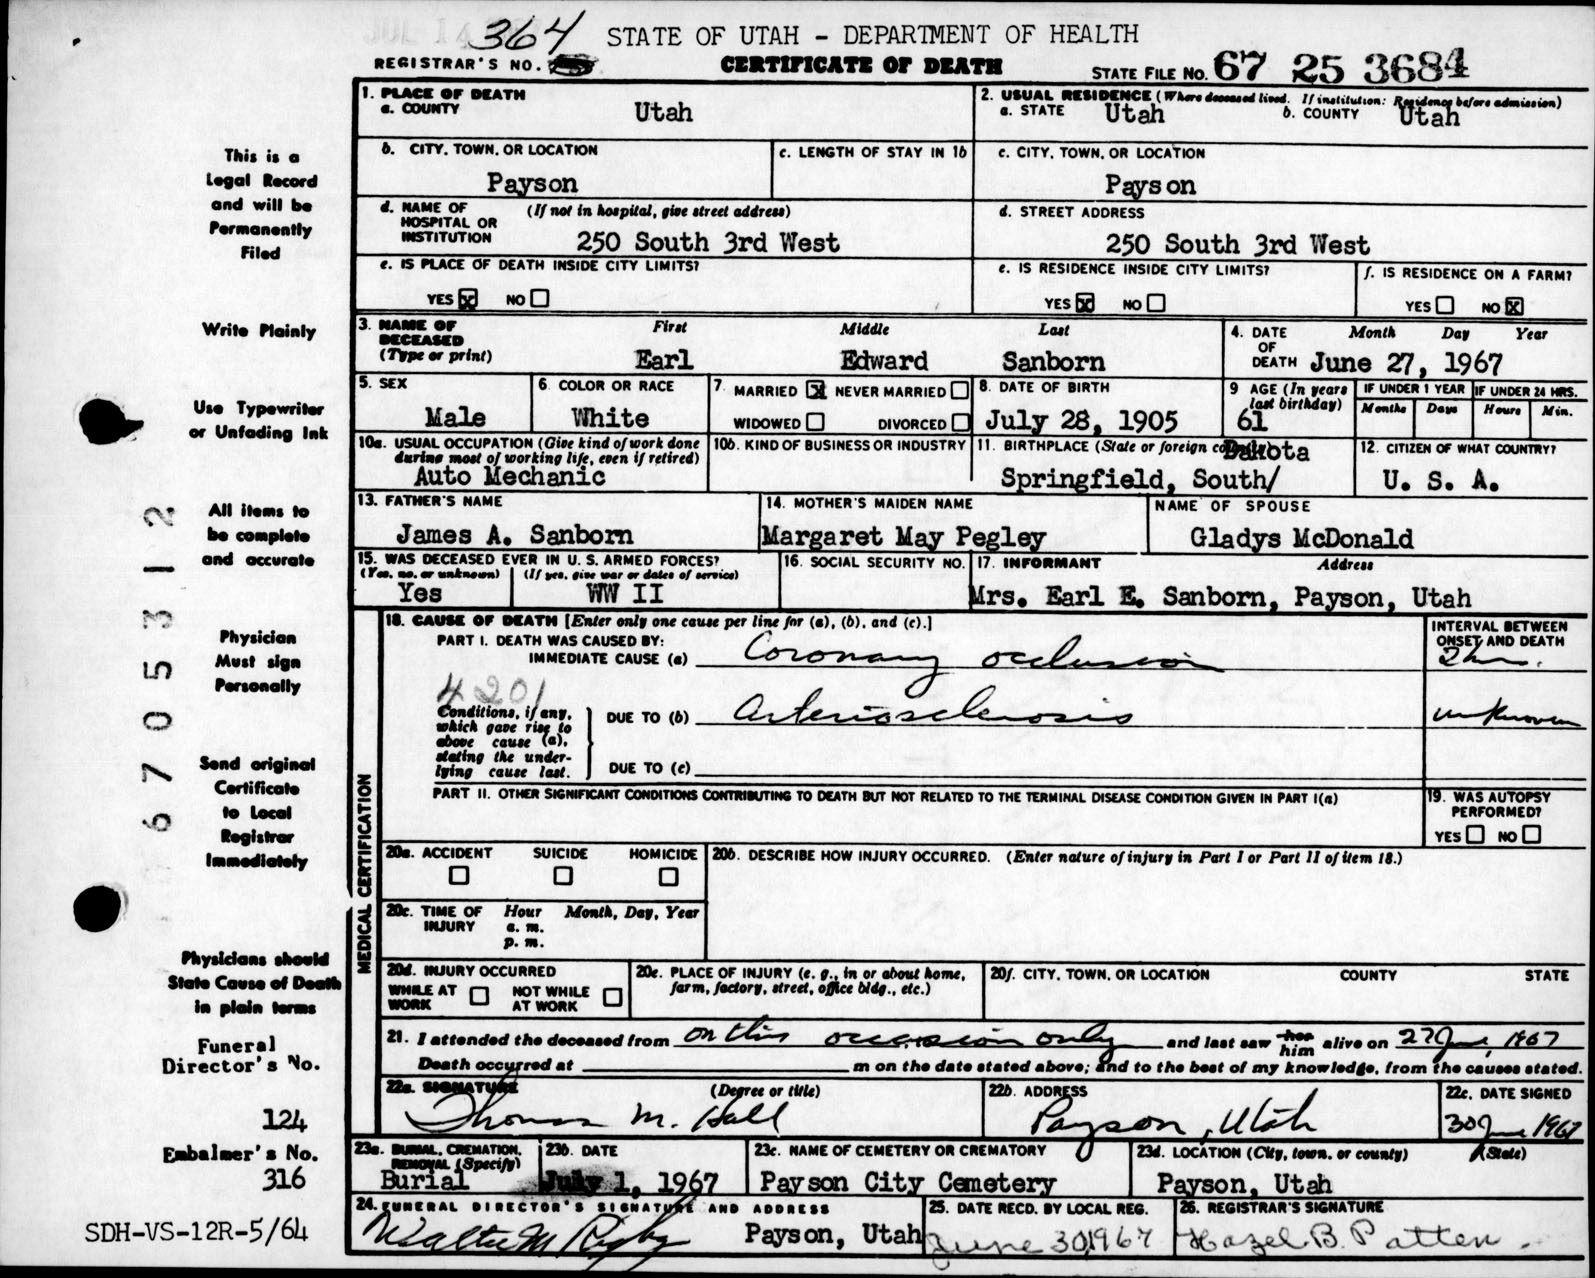 364 STATE OF UTAH - DEPARTMENT OF HEALTH
REGISTRAR'S NO. CERTIFICATE OF DEATH STATE FILE NO. 67 25 3684
This is a
Legal Record
and will be
Permanently
Filed
Write Plainly
Use Typewriter
or Unfading Ink
All items to
be complete
and accurate
Physician
Must sign
Personally
Send original
Certificate
to Local
Registrar
Immediately
Physicians should
State Cause of Death
in plain terms
Funeral
Director's No.
124
Embalmer's No.
316
SDH-VS-12R-5/64
6705312
1. PLACE OF DEATH
a. COUNTY Utah
2. USUAL RESIDENCE (Where deceased lived. If institution: Residence before admission)
a. STATE Utah b. COUNTY Utah
b. CITY, TOWN, OR LOCATION c. LENGTH OF STAY IN 1b c. CITY, TOWN, OR LOCATION
Payson Payson
d. NAME OF HOSPITAL OR INSTITUTION (If not in hospital, give street address) d. STREET ADDRESS
250 South 3rd West 250 South 3rd West
e. IS PLACE OF DEATH INSIDE CITY LIMITS? e. IS RESIDENCE INSIDE CITY LIMITS? f. IS RESIDENCE ON A FARM?
YES X NO YES X NO YES NO X
3. NAME OF DECEASED (Type or print) First Middle Last 4. DATE OF DEATH Month Day Year
Earl Edward Sanborn June 27, 1967
5. SEX 6. COLOR OR RACE 7. MARRIED X NEVER MARRIED 8. DATE OF BIRTH 9 AGE (In years last birthday) IF UNDER 1 YEAR IF UNDER 24 HRS.
Months Days Hours Min.
Male White WIDOWED DIVORCED July 28, 1905 61
10a. USUAL OCCUPATION (Give kind of work done during most of working life, even if retired) 10b. KIND OF BUSINESS OR INDUSTRY 11. BIRTHPLACE (State or foreign Dakota 12. CITIZEN OF WHAT COUNTRY?
Auto Mechanic Springfield, South/ U. S. A.
13. FATHER'S NAME 14. MOTHER'S MAIDEN NAME NAME OF SPOUSE
James A. Sanborn Margaret May Pegley Gladys McDonald
15. WAS DECEASED EVER IN U. S. ARMED FORCES? 16. SOCIAL SECURITY NO. 17. INFORMANT Address
(Yes, no, or unknown) (If yes, give war or dates of service)
Yes WW II Mrs. Earl E. Sanborn, Payson, Utah
MEDICAL CERTIFICATION
18. CAUSE OF DEATH [Enter only one cause per line for (a), (b), and (c).] INTERVAL BETWEEN ONSET AND DEATH
PART I. DEATH WAS CAUSED BY:
IMMEDIATE CAUSE (a) Coronary occlusion 2 hrs.
4201
Conditions, if any, which gave rise to above cause (a), stating the underlying cause last.
DUE TO (b) Arteriosclerosis unknown
DUE TO (c)
PART II. OTHER SIGNIFICANT CONDITIONS CONTRIBUTING TO DEATH BUT NOT RELATED TO THE TERMINAL DISEASE CONDITION GIVEN IN PART I(a) 19. WAS AUTOPSY PERFORMED?
YES NO
20a. ACCIDENT SUICIDE HOMICIDE 20b. DESCRIBE HOW INJURY OCCURRED. (Enter nature of injury in Part I or Part II of item 18.)
20c. TIME OF INJURY Hour Month, Day, Year
a. m.
p. m.
20d. INJURY OCCURRED 20e. PLACE OF INJURY (e. g., in or about home, farm, factory, street, office bldg., etc.) 20f. CITY, TOWN, OR LOCATION COUNTY STATE
WHILE AT WORK NOT WHILE AT WORK
21. I attended the deceased from on this occasion only and last saw her him alive on 27 June, 1967
Death occurred at m on the date stated above; and to the best of my knowledge, from the causes stated.
22a. SIGNATURE (Degree or title) 22b. ADDRESS 22c. DATE SIGNED
Thomas M. Hall Payson, Utah 30 June 1967
23a. BURIAL, CREMATION, REMOVAL (Specify) 23b. DATE 23c. NAME OF CEMETERY OR CREMATORY 23d. LOCATION (City, town, or county) (State)
Burial July 1, 1967 Payson City Cemetery Payson, Utah
24. FUNERAL DIRECTOR'S SIGNATURE AND ADDRESS 25. DATE RECD. BY LOCAL REG. 26. REGISTRAR'S SIGNATURE
Walter M Rigby Payson, Utah June 30, 1967 Hazel B. Patten.